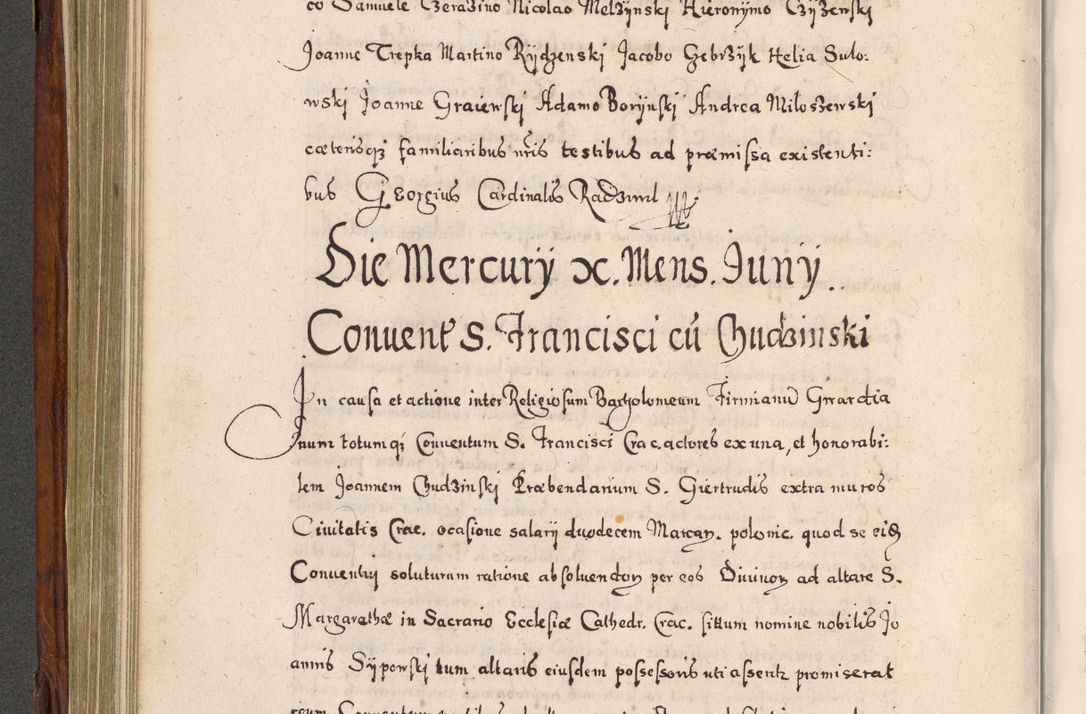 co Samuele Czerazino Nicolao Melzynski Hieronymo Czyzenski
Joanne Trepka Martino Rydzenski Jacobo Gebrzyk Helia Sulo:
wski Joanne Graiewski Adamo Borynski Andrea Miloszewski
cæterisqȝ familiaribus nris testibus ad præmissa existenti:
bus Georgius Cardinalis Radziwil
Die Mercurÿ x. Mens. Junÿ.
Convent S. Francisci cū Gudzinski
In causa et actione inter Religiosum Bartholomeum Firmianū Gwardia
num totumqȝ Conventum S. Francisci Crac. actores ex una, et honorabi:
lem Joannem Gudzinski Præbendarium S. Giertrudis extra muros
Civitatis Crac. ocasione salarÿ duodecem Marcaꝝ. polonic. quod se
Conventuj soluturum ratione absolvendoꝝ per eos Divinoꝝ ad altare S.
Margarathæ in Sacrario Ecclesiæ Cathedr. Crac. situm nomine nobilis Jo
annis Sypowski tum altaris eiusdem possessoris uti asserit promiserat